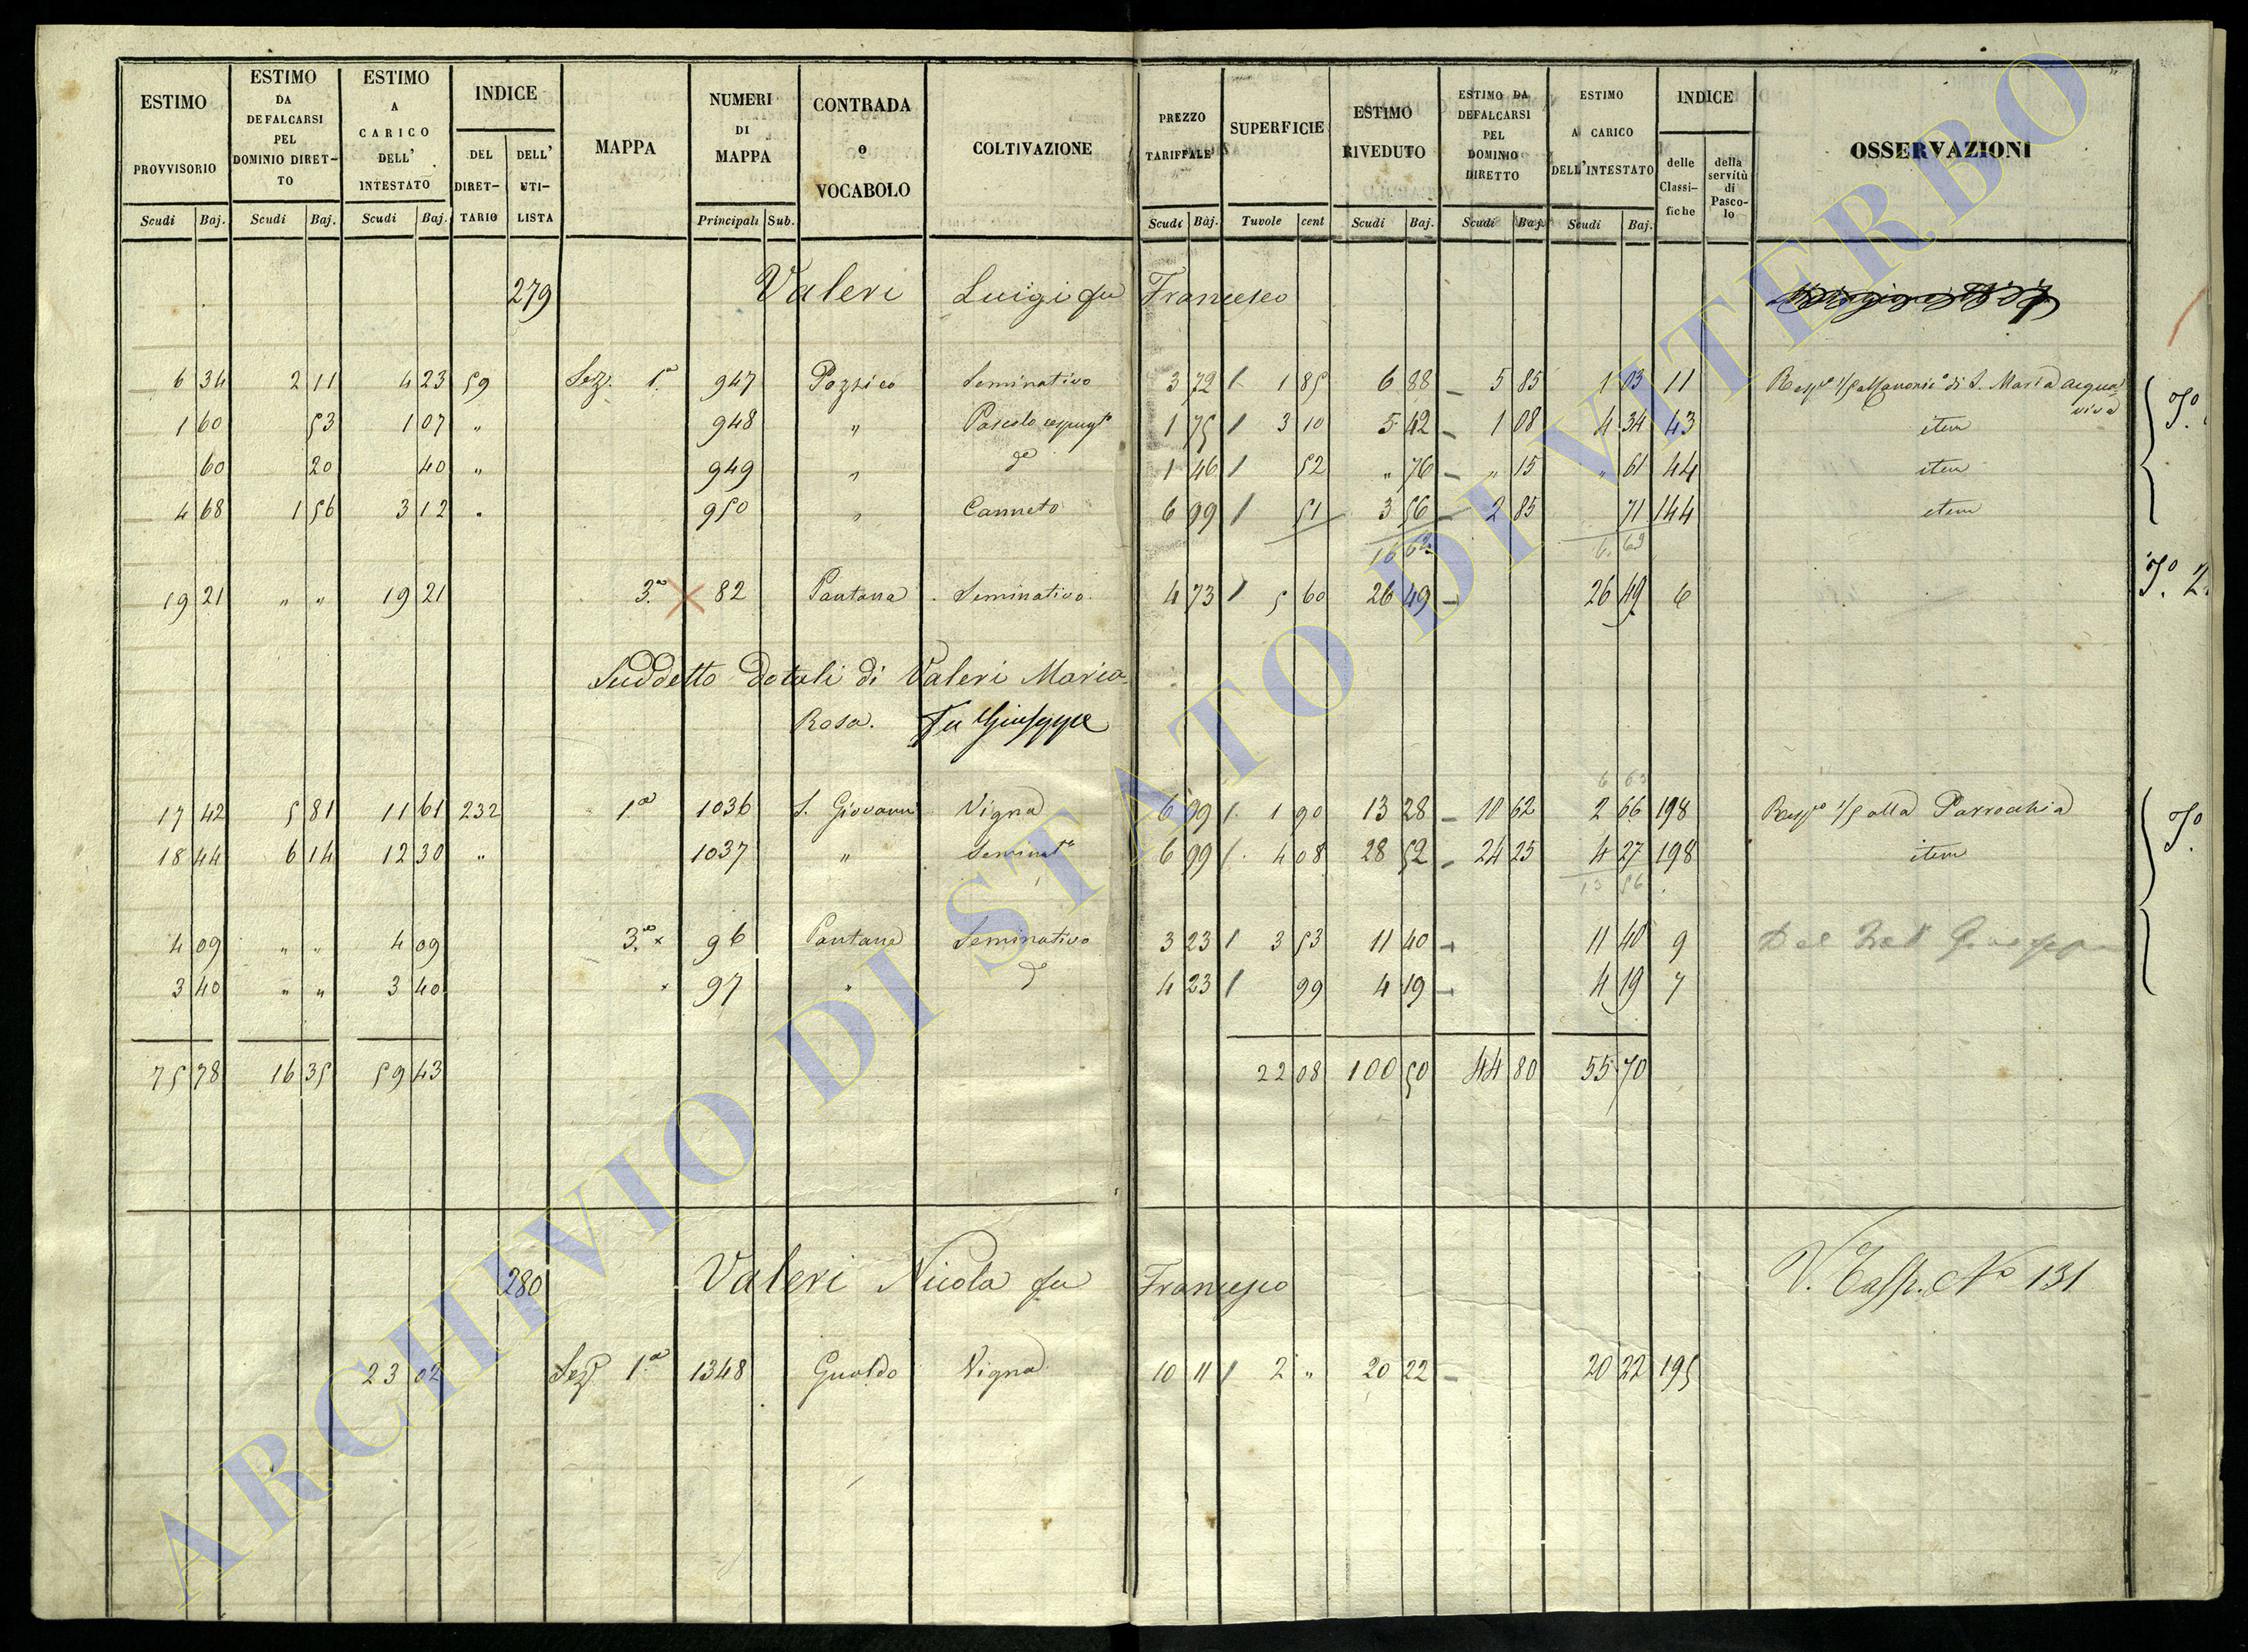 ESTIMO PROVVISORIO
ESTIMO DA DEFALCARSI PEL DOMINIO DIRET-TO
ESTIMO A CARICO DELL' INTESTATO
INDICE
DEL DIRET-TARIO
DELL' UTI-LISTA
MAPPA
NUMERI DI MAPPA
CONTRADA o VOCABOLO
COLTIVAZIONE
PREZZO TARIFFALE
SUPERFICIE
ESTIMO RIVEDUTO
ESTIMO DA DEFALCARSI PEL DOMINIO DIRETTO
ESTIMO A CARICO DELL'INTESTATO
INDICE
delle Classi-fiche
della servitù di Pasco-lo
OSSERVAZIONI
Scudi Baj. Scudi Baj. Scudi Baj. Principali Sub. Scudi Baj. Tavole cent Scudi Baj. Scudi Baj. Scudi Baj.
279 Valeri Luigi fu Francesco
6 34 2 11 4 23 59 Sez. 1.a 947 Pozzico Seminativo 3 72 1 85 6 88 5 85 1 03 11 di S. Maria acqua
viva
1 60 53 1 07 " 948 " Pascolo 1 75 3 10 5 42 1 08 4 34 43 item
60 20 40 " 949 " d.o 1 46 52 " 76 " 15 " 61 44 item
4 68 1 56 3 12 " 950 " Canneto 6 99 51 3 56 2 85 71 144 item
16 62 6. 69
19 21 " " 19 21 3.a 82 Pantana Seminativo 4 73 5 60 26 49 26 49 6
Suddetto Dotali di Valeri Maria
Rosa. Fu Giuseppe
6 69
17 42 5 81 11 61 232 1a 1036 S. Giovanni Vigna 6 99 1 90 13 28 10 62 2 66 198 Risp.a 1/5 alla Parrochia
18 44 6 14 12 30 " 1037 " Seminat.o 6 99 4 08 28 52 24 25 4 27 198 item
13 56
4 09 " " 4 09 3.a 96 Pantana Seminativo 3 23 3 53 11 40 11 40 9 Del Giuseppe
3 40 " " 3 40 97 " d.o 4 23 99 4 19 4 19 7
75 78 16 35 59 43 22 08 100 50 44 80 55 70
280 Valeri Nicola fu Francesco V. Cass. No 131
23 02 Sez. 1.a 1348 Gualdo Vigna 10 11 2 " 20 22 20 22 195
ARCHIVIO DI STATO DI VITERBO